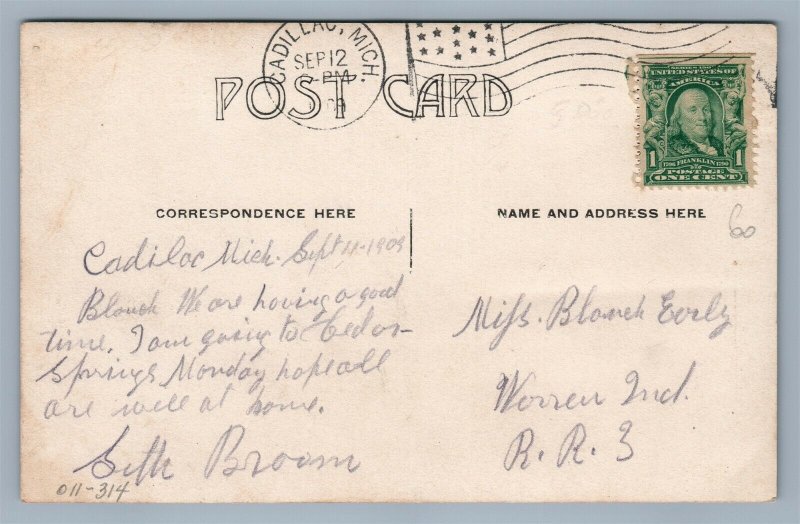 CADILLAC, MICH.
SEP 12
-PM
POST CARD
SERIES 1902
UNITED STATES OF
AMERICA
1 FRANKLIN 1
POSTAGE
ONE CENT
CORRESPONDENCE HERE
NAME AND ADDRESS HERE
60
Cadilac Mich. Sept 11-1909
Blanch We are having a good
time. I am going to Cedar
Springs Monday hope all
are well at home.
Seth Broom
011-314
Miss. Blanch Early
Warren Ind.
R. R. 3